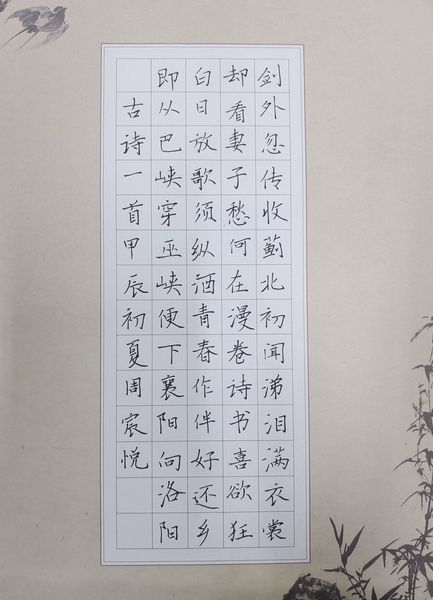 剑外忽传收蓟北初闻涕泪满衣裳
却看妻子愁何在漫卷诗书喜欲狂
白日放歌须纵酒青春作伴好还乡
即从巴峡穿巫峡便下襄阳向洛阳
古诗一首甲辰初夏周宸悦